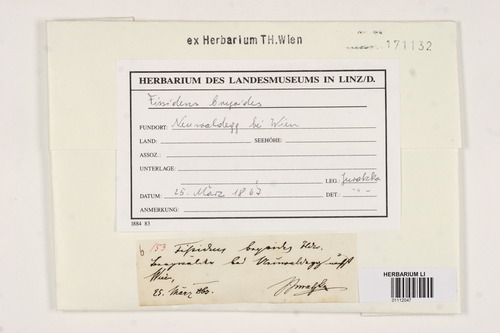 ex Herbarium TH.Wien
171132
HERBARIUM DES LANDESMUSEUMS IN LINZ/D.
Fissidens bryoides
FUNDORT: Neuwaldegg bei Wien
LAND: SEEHÖHE:
ASSOZ.:
UNTERLAGE:
LEG.: Juratzka
DATUM: 25. März 1867 DET.: -"-
ANMERKUNG:
1884 83
b 153 Fissidens bryoides Hdw.
bei Neuwaldegg nächst
Wien,
25. März
Juratzka
HERBARIUM LI
01112047